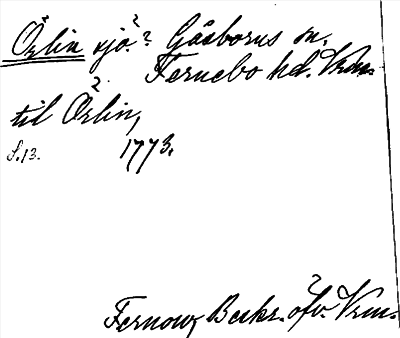 Örlin sjö? Gåsborns sn.
Fernebo hd. Vrm.
til Örlin,
S.13. 1773.
Fernow, Beskr. öfv. Vrm.